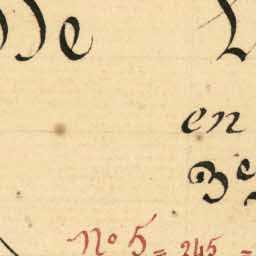 de
en
3e
No 5 = 245 =